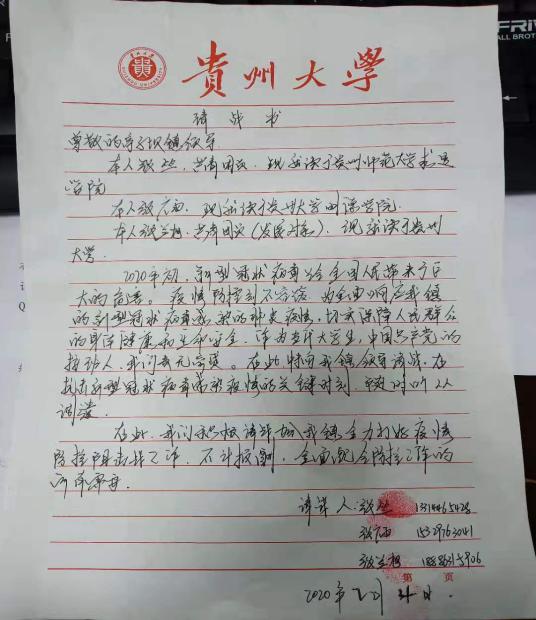 FRIV
ALL BROT
GUIZHOU UNIVERSITY
貴州大學
请战书
尊敬的 镇领导
本人张丛，共青团员，现就读于贵州师范大学求是
学院
本人张 ，现就读于贵州大学 学院.
本人张 ，共青团员（发展对象），现就读于贵州
大学.
2020年初，新型冠状病毒给全国人民带来了巨
大的危害。疫情防控刻不容缓，为全面响应我镇
的新型冠状病毒感染的肺炎疫情，切实保障人民群众
的身体健康和生命安全，作为当代大学生，中国共产党的
接班人，我们责无旁贷。在此，特向我镇领导请战，在
抗击新型冠状病毒感染疫情的关键时刻，随时听从
调遣
在此，我们积极请战加我镇全力打好疫情
防控阻击战工作，不计报酬，全面配合防控工作的
所有事务.
请战人：张丛
张
张
第 页
2020年2月